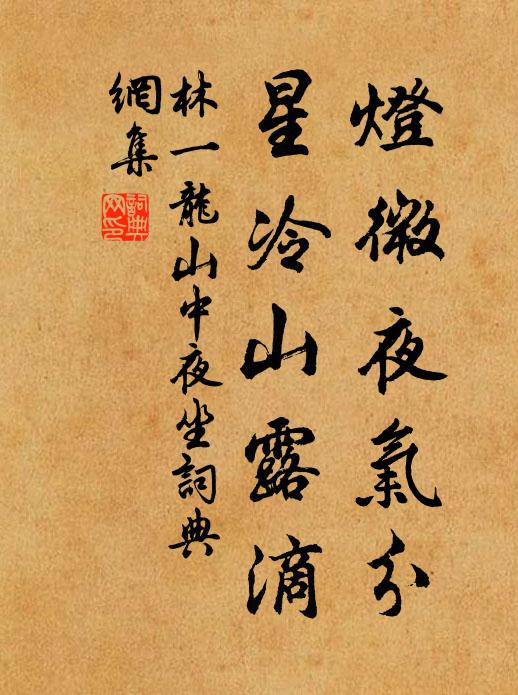 燈微夜氣分
星冷山露滴
林一龍山中夜坐詞典
網集
詞典
网印